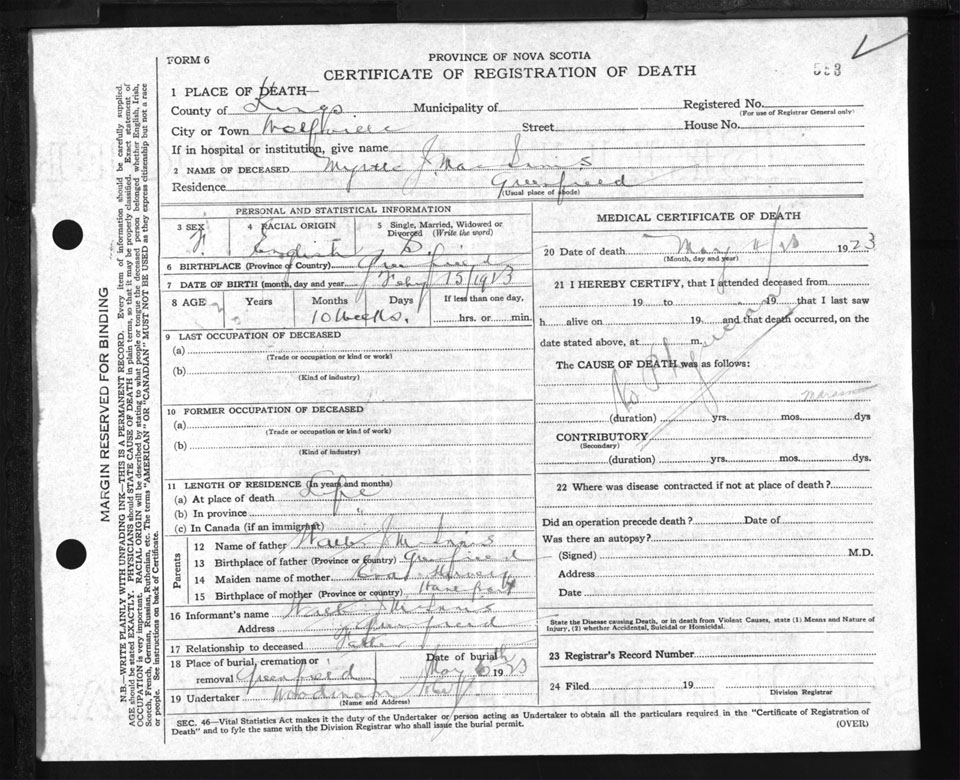 FORM 6
PROVINCE OF NOVA SCOTIA
CERTIFICATE OF REGISTRATION OF DEATH
553
1 PLACE OF DEATH—
County of Kings Municipality of Registered No.
(For use of Registrar General only)
City or Town Wolfville Street House No.
If in hospital or institution, give name
2 NAME OF DECEASED Myrtle J. Mac Innis
Residence Greenfield
(Usual place of abode)
PERSONAL AND STATISTICAL INFORMATION
3 SEX 4 RACIAL ORIGIN 5 Single, Married, Widowed or Divorced (Write the word)
F. English S.
6 BIRTHPLACE (Province or Country) Greenfield
7 DATE OF BIRTH (month, day and year) Feby 15/1923
8 AGE Years Months Days If less than one day,
10 weeks. hrs. or min.
9 LAST OCCUPATION OF DECEASED
(a)
(Trade or occupation or kind or work)
(b)
(Kind of industry)
10 FORMER OCCUPATION OF DECEASED
(a)
(Trade or occupation or kind of work)
(b)
(Kind of industry)
11 LENGTH OF RESIDENCE (In years and months)
(a) At place of death Life
(b) In province "
(c) In Canada (if an immigrant)
Parents
12 Name of father J McInnis
13 Birthplace of father (Province or country) Greenfield
14 Maiden name of mother
15 Birthplace of mother (Province or country) Hantsport
16 Informant's name J McInnis
Address Greenfield
17 Relationship to deceased Father
18 Place of burial, cremation or removal Greenfield Date of burial May 6th 1923
19 Undertaker Woodman
(Name and Address)
MEDICAL CERTIFICATE OF DEATH
20 Date of death May 4/23 1923
(Month, day and year)
21 I HEREBY CERTIFY, that I attended deceased from
19 to 19 that I last saw
h alive on 19 and that death occurred, on the
date stated above, at m.
The CAUSE OF DEATH was as follows:
No Physician
(duration) yrs. mos. dys
CONTRIBUTORY
(Secondary)
(duration) yrs. mos. dys.
22 Where was disease contracted if not at place of death?
Did an operation precede death? Date of
Was there an autopsy?
(Signed) M.D.
Address
Date
State the Disease causing Death, or in death from Violent Causes, state (1) Means and Nature of
Injury, (2) whether Accidental, Suicidal or Homicidal.
23 Registrar's Record Number
24 Filed 19
Division Registrar
SEC. 46—Vital Statistics Act makes it the duty of the Undertaker or person acting as Undertaker to obtain all the particulars required in the "Certificate of Registration of
Death" and to fyle the same with the Division Registrar who shall issue the burial permit. (OVER)
MARGIN RESERVED FOR BINDING
N.B.—WRITE PLAINLY WITH UNFADING INK—THIS IS A PERMANENT RECORD. Every item of information should be carefully supplied.
AGE should be stated EXACTLY. PHYSICIANS should STATE CAUSE OF DEATH in plain terms, so that it may be properly classified. Exact statement of
OCCUPATION is very important. RACIAL ORIGIN will be described by stating to what people or tongue the deceased person belonged whether English, Irish,
Scotch, French, German, Russian, Ruthenian, etc. The terms "AMERICAN" OR "CANADIAN" MUST NOT BE USED as they express citizenship but not a race
or people. See instructions on back of Certificate.